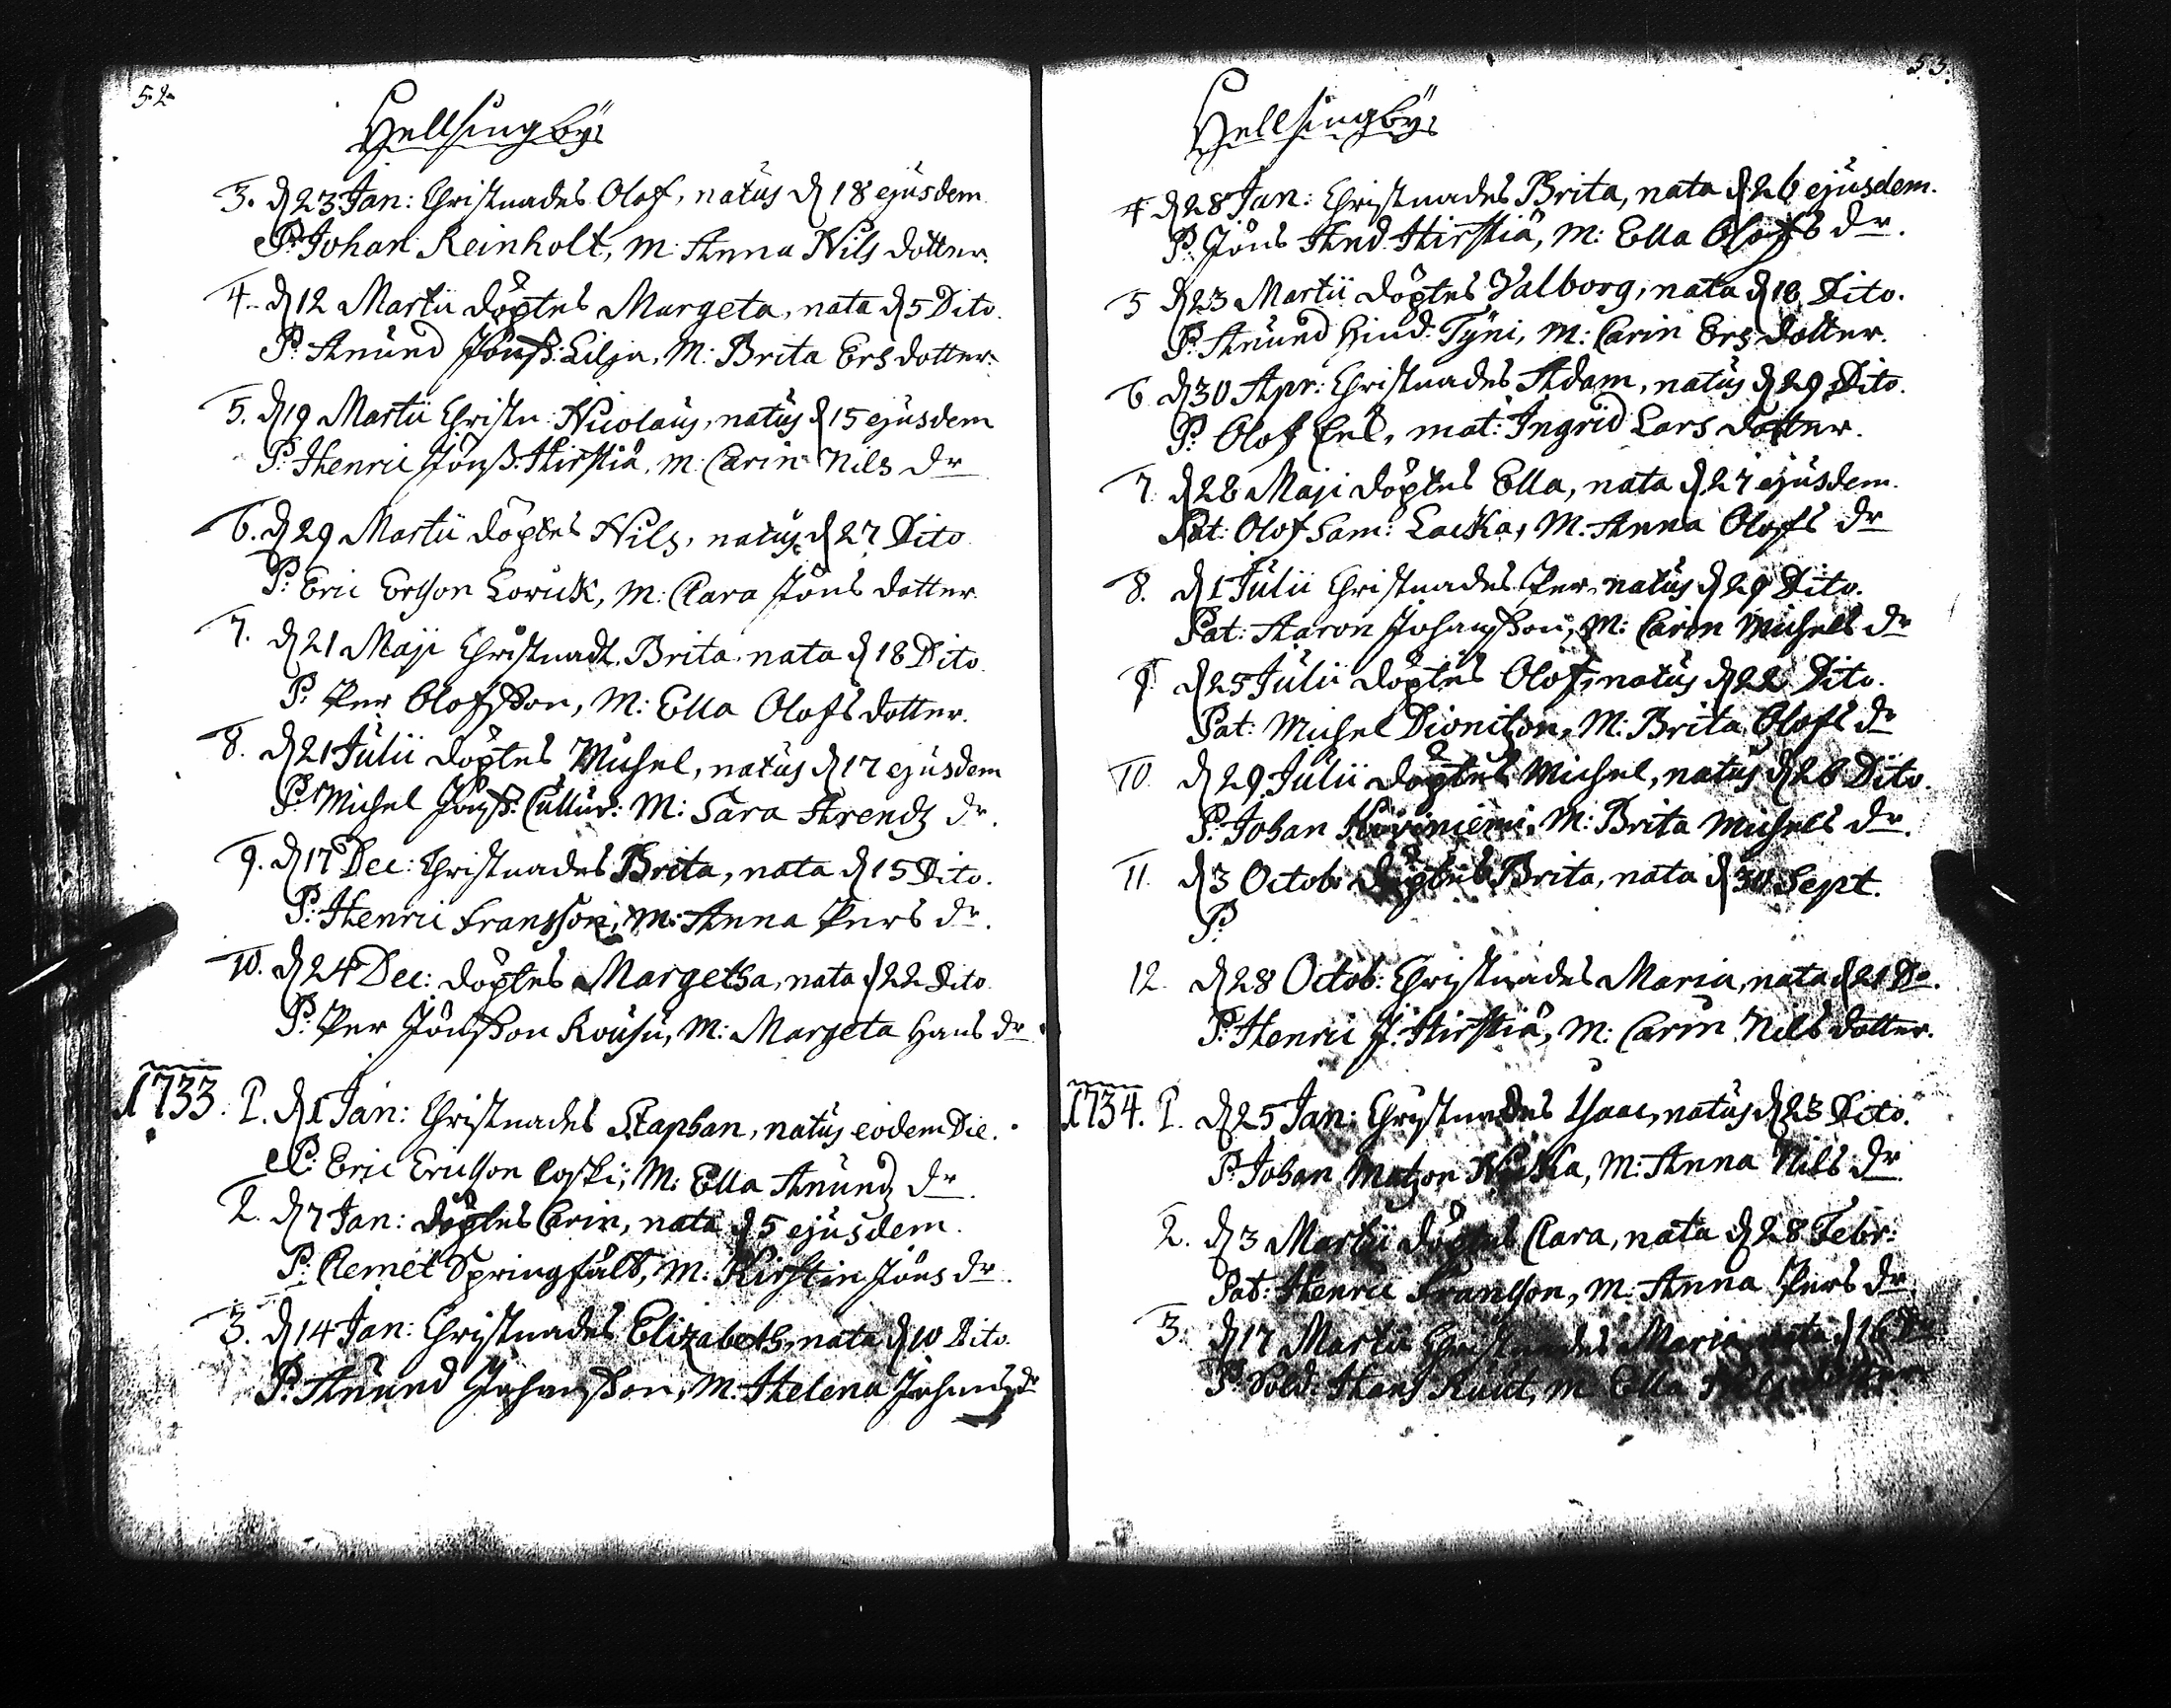 52.
Hellsingbÿ
3. d 23 Jan: Christnades Olof, natus d 18 ejusdem
P: Johan Reinholt, M: Anna Nils dotter.
4. d 12 Martii döptes Margeta, nata d 5 Dito.
P: Anund Jönß: Lilja, M: Brita Ers dotter.
5. d 19 Martii Christn: Nicolaus, natus d 15 ejusdem
P: Henric Jönß: Hirstiä, M: Carin Nils dr
6. d 29 Martii döptes Nils, natus d 27 Dito
P: Eric Erson Lorick, M: Clara Jöns dotter.
7. d 21 Maji Christnadt, Brita, nata d 18 Dito.
P: Per Olofsson, M: Ella Olofs dotter.
8. d 21 Julii döptes Michel, natus d 17 ejusdem
P: Michel Jönß: M: Sara Arendz dr.
9. d 17 Dec: Christnades Brita, nata d 15 Dito.
P: Henric Fransson, M: Anna Pers dr.
10. d 24 Dec: döptes Margetha, nata d 22 Dito
P: Per Jönsson M: Margeta Hans dr
1733. 1. d 1 Jan: Christnades Staphan, natus eodem Die.
P: Eric Ericsson M: Ella Anundz dr.
2. d 7 Jan: döptes Carin, nata d 5 ejusdem.
P: Clemet Springfält, M: Kirstin Jöns dr.
3. d 14 Jan: Christnades Elizabeth, nata d 10 Dito.
P: Anund Johansson, M: Helena dr
53.
Hellsingbÿ
4 d 28 Jan: Christnades Brita, nata d 26 ejusdem.
P: Jöns And: Hirstiä, M: Ella Olofs dr.
5 d 23 Martii döptes Valborg, nata d 18 Dito.
P: Anund Hind: Tÿni, M: Carin Ers dotter.
6 d 30 Apr: Christnades Adam, natus d 29 Dito.
P: Olof mat: Ingrid Lars dotter.
7. d 28 Maji döptes Ella, nata d 27 ejusdem.
Pat: Olof Sam: Lacka, M: Anna Olofs dr
8. d 1 Julii Christnades Per, natus d 29 Dito.
Pat: Aaron Johansson, M: Carin Michels dr
9. d 25 Julii döptes Olof, natus d 22 Dito.
Pat: Michel Dionitson, M: Brita Olofs dr
10. d 29 Julii döptes Michel, natus d 26 Dito.
P: Johan M: Brita Michels dr.
11. d 3 Octob: döptes Brita, nata d 30 Sept.
P:
12. d 28 Octob: Christnades Maria, nata d 21 Do.
P: Henric J: Hirstiä, M: Carin Nils dotter.
1734. 1. d 25 Jan: Christnades Isaac, natus d 23 Dito.
P: Johan Matzon M: Anna Nils dr
2. d 3 Martii döptes Clara, nata d 28 Febr:
Pat: Henric Fransson, M: Anna Pers dr
3. d 17 Martii Christnades Maria, nata d 16 Do
P: Sold: Hans M: Ella